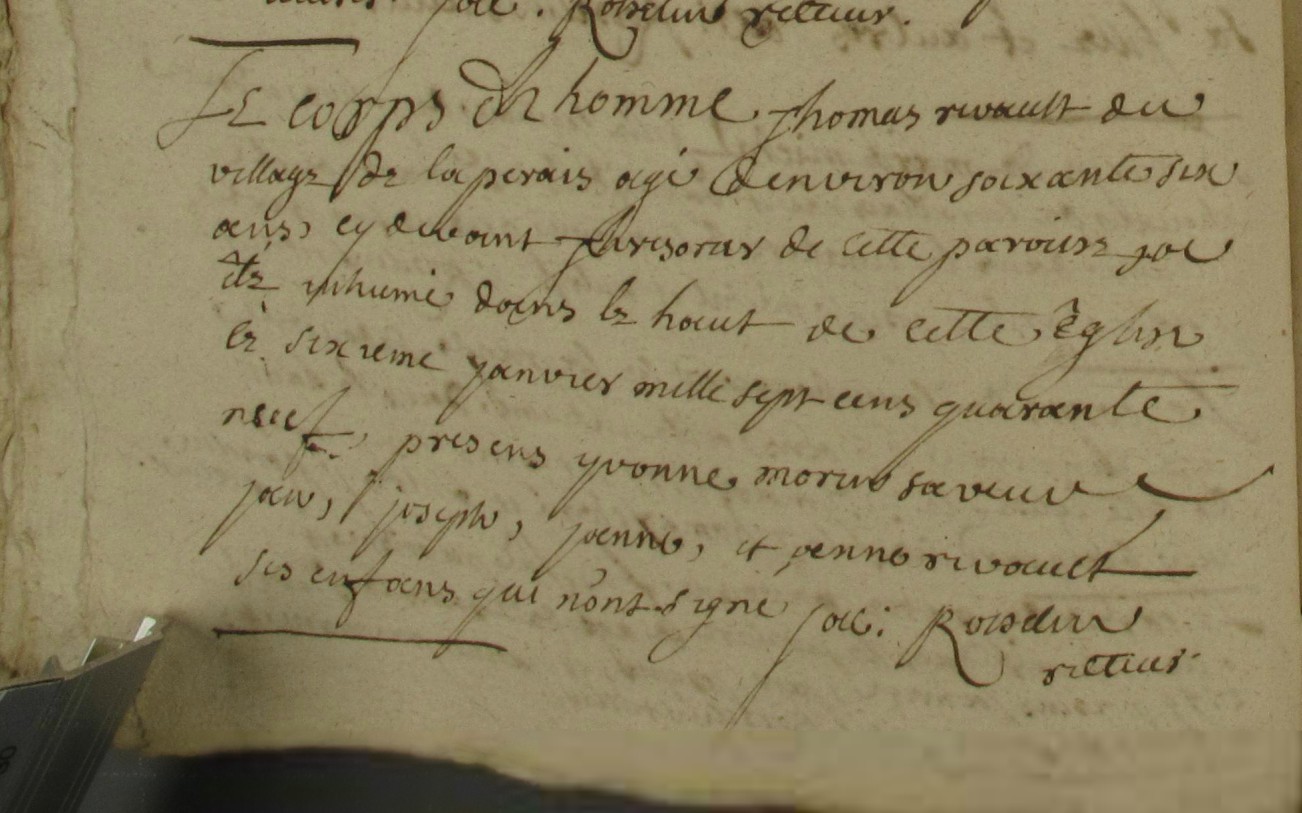 jac. Rosselin recteur.
Le corps de homme Thomas rivault du
village de la perais agé denviron soixante six
ans, cy devant Thresorier de cette paroisse a
été inhumé dans le haut de cette Église
le sixieme janvier mille sept cens quarante
neuf, presens yvonne morin sa veuve
jan, joseph, janne, et anne rivault
ses enfans qui n'ont signé jac: Rosselin
recteur